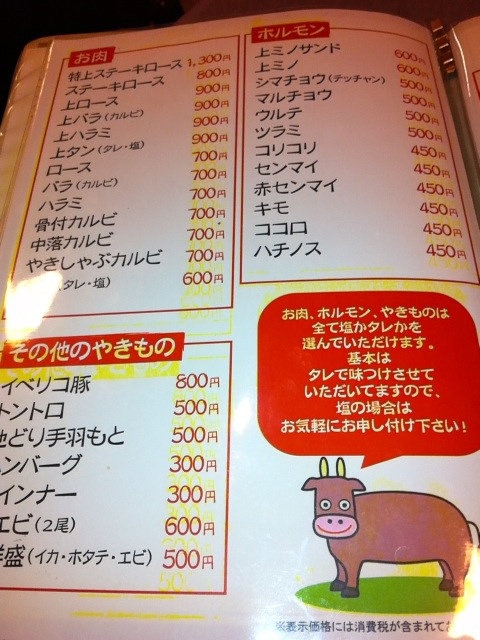 お肉
特上ステーキロース 1,300円
ステーキロース 800円
上ロース 900円
上バラ(カルビ) 900円
上ハラミ 900円
上タン(タレ・塩) 900円
ロース 700円
バラ(カルビ) 700円
ハラミ 700円
骨付カルビ 700円
中落カルビ 700円
やきしゃぶカルビ 700円
(タレ・塩) 600円
その他のやきもの
イベリコ豚 800円
ントロ 500円
どり手羽もと 500円
ンバーグ 300円
インナー 300円
エビ(2尾) 600円
盛(イカ・ホタテ・エビ) 500円
ホルモン
上ミノサンド 600円
上ミノ 600円
シマチョウ(テッチャン) 500円
マルチョウ 500円
ウルテ 500円
ツラミ 500円
コリコリ 450円
センマイ 450円
赤センマイ 450円
キモ 450円
ココロ 450円
ハチノス 450円
お肉、ホルモン、やきものは
全て塩かタレかを
選んでいただけます。
基本は
タレで味つけさせて
いただいてますので、
塩の場合は
お気軽にお申し付け下さい!
※表示価格には消費税が含まれてお